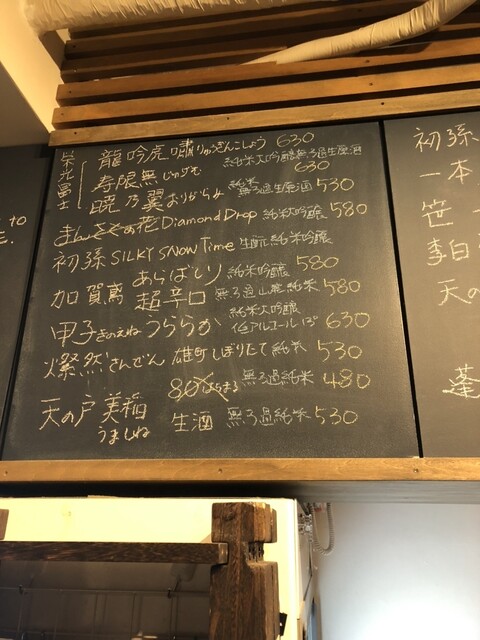 to
栄光冨士
龍吟虎嘯 りゅうぎんこしょう 630
純米大吟醸無ろ過生原酒
寿限無 じゅげむ 630
暁乃翼 おりがらみ 純米 無ろ過生原酒 530
まんさくの花 Diamond Drop 純米吟醸 580
初孫 SILKY SNOW Time 生酛純米吟醸
あらばしり 純米吟醸 580
加賀鳶 超辛口 無ろ過山廃純米 580
甲子 きのえね うららか 純米大吟醸 低アルコール 630
燦然 さんぜん 雄町しぼりたて純米 530
80 はちまる 無ろ過純米 480
天の戸 美稲 うましね 生酒 無ろ過純米 530
初孫
一本
笹一
李白
天の
蓬